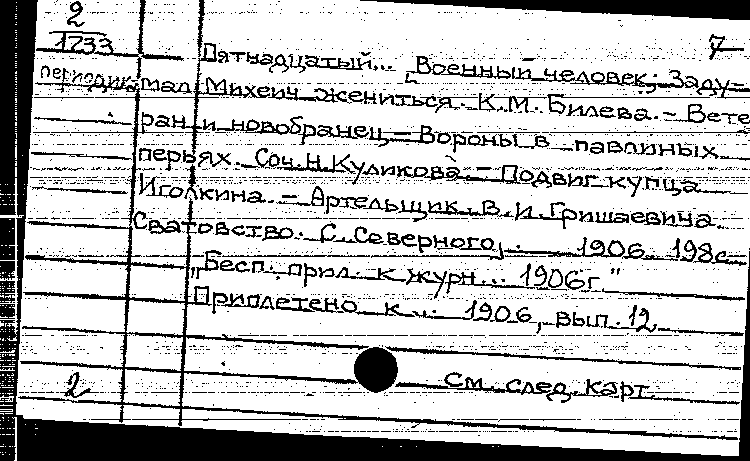 2
1233
7
периодика
Пятнадцатый... [Военный человек; Заду-
мал Михеич жениться. К.М. Билева. - Вете
ран и новобранец - Вороны в павлиных
перьях. Соч. Н. Куликова - Подвиг купца
Иголкина. - Артельщик. В.И. Гришаевича.
Сватовство. С. Северного]. 1906. 198с.
"Бесп. прил. к журн... 1906г."
Приплетено к ...: 1906, вып. 12
2
См. след. карт.